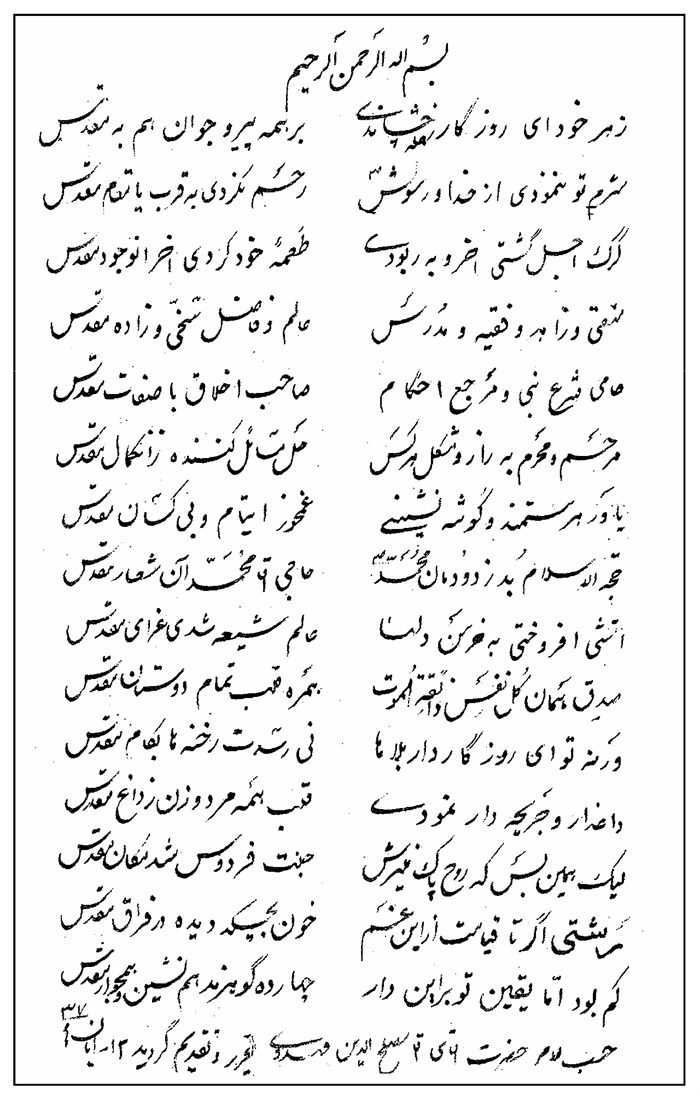 بسم الله الرحمن الرحیم
زهر خود ای روزگار چشاندی بر همه پیر و جوان هم به مقدس
شرم تو ننمودی از خدا و رسولش رحم نکردی به قرب یا مقام مقدس
گرگ اجل گشتی آخر و به ربودی طعمهٔ خود کردی آخر آن وجود مقدس
متقی و زاهد و فقیه و مدرس عالم و فاضل سخی و زاده مقدس
حامی شرع نبی و مرجع احکام صاحب اخلاق با صفات مقدس
مرحم و محرم به راز و مشکل هر کس حل مسائل کننده زان کمال مقدس
یاور هر مستمند و گوشه نشینی غمخور ایتام و بی کسان مقدس
حجة الاسلام بد ز دودمان محمد حاجی آقا محمد آن شعار مقدس
آتشی افروختی به خرمن دلها عالم شیعه شدی عزای مقدس
صدق همان کل نفس ذائقة الموت بهره قلب تمام دوستان مقدس
ورنه تو ای روزگار دار بلاها نی رسدت رخنه ها بکام مقدس
داغدار و جریحه دار نمودی قلب همه مرد و زن ز داغ مقدس
لیک همین بس که روح پاک منیرش جنت فردوس شد مکان مقدس
گر بشتی اگر تا قیامت از این غم خون بچکد دیده در فراق مقدس
کم بود اما یقین تو بر این دار چهارده گوهرند هم نشین و همجوار مقدس
حسب الامر حضرت آقای آقا مصلح الدین مهدوی تحریر و تقدیم گردید ۱۲ - آبان ۳۷